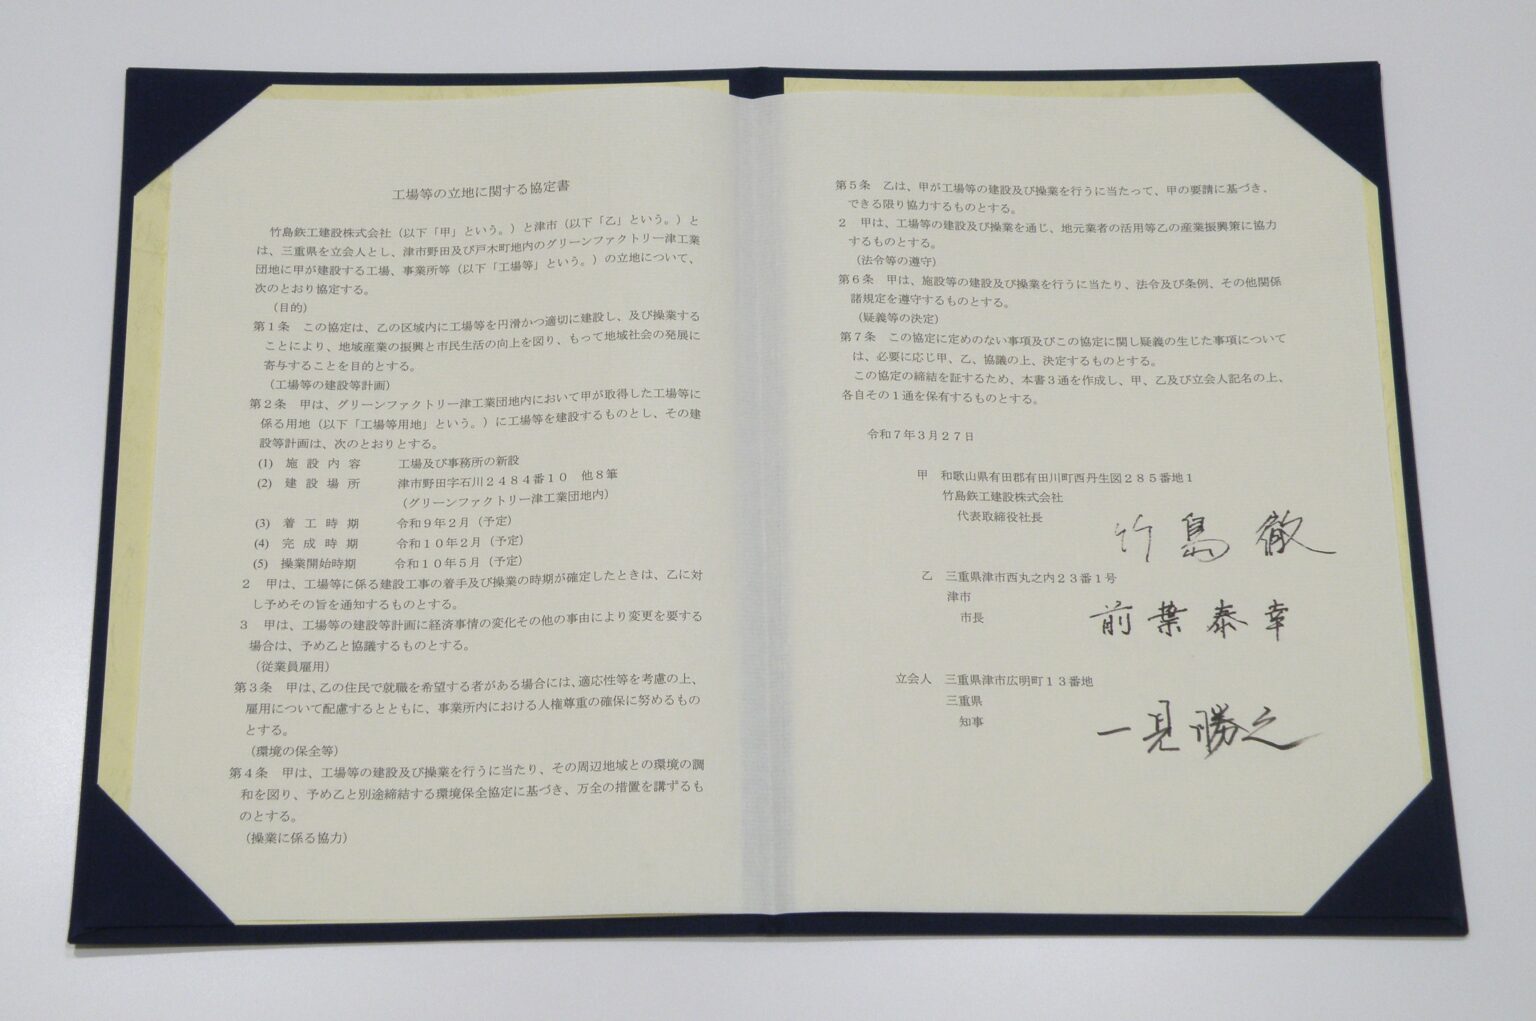 工場等の立地に関する協定書
竹島鉄工建設株式会社（以下「甲」という。）と津市（以下「乙」という。）と
は、三重県を立会人とし、津市野田及び戸木町地内のグリーンファクトリー津工業
団地に甲が建設する工場、事業所等（以下「工場等」という。）の立地について、
次のとおり協定する。
（目的）
第１条　この協定は、乙の区域内に工場等を円滑かつ適切に建設し、及び操業する
ことにより、地域産業の振興と市民生活の向上を図り、もって地域社会の発展に
寄与することを目的とする。
（工場等の建設等計画）
第２条　甲は、グリーンファクトリー津工業団地内において甲が取得した工場等に
係る用地（以下「工場等用地」という。）に工場等を建設するものとし、その建
設等計画は、次のとおりとする。
(1)　施設内容　工場及び事務所の新設
(2)　建設場所　津市野田字石川２４８４番１０　他８筆
（グリーンファクトリー津工業団地内）
(3)　着工時期　令和９年２月（予定）
(4)　完成時期　令和１０年２月（予定）
(5)　操業開始時期　令和１０年５月（予定）
２　甲は、工場等に係る建設工事の着手及び操業の時期が確定したときは、乙に対
し予めその旨を通知するものとする。
３　甲は、工場等の建設等計画に経済事情の変化その他の事由により変更を要する
場合は、予め乙と協議するものとする。
（従業員雇用）
第３条　甲は、乙の住民で就職を希望する者がある場合には、適応性等を考慮の上、
雇用について配慮するとともに、事業所内における人権尊重の確保に努めるもの
とする。
（環境の保全等）
第４条　甲は、工場等の建設及び操業を行うに当たり、その周辺地域との環境の調
和を図り、予め乙と別途締結する環境保全協定に基づき、万全の措置を講ずるも
のとする。
（操業に係る協力）
第５条　乙は、甲が工場等の建設及び操業を行うに当たって、甲の要請に基づき、
できる限り協力するものとする。
２　甲は、工場等の建設及び操業を通じ、地元業者の活用等乙の産業振興策に協力
するものとする。
（法令等の遵守）
第６条　甲は、施設等の建設及び操業を行うに当たり、法令及び条例、その他関係
諸規定を遵守するものとする。
（疑義等の決定）
第７条　この協定に定めのない事項及びこの協定に関し疑義の生じた事項について
は、必要に応じ甲、乙、協議の上、決定するものとする。
この協定の締結を証するため、本書３通を作成し、甲、乙及び立会人記名の上、
各自その１通を保有するものとする。
令和７年３月２７日
甲　和歌山県有田郡有田川町西丹生図２８５番地１
竹島鉄工建設株式会社
代表取締役社長　竹島徹
乙　三重県津市西丸之内２３番１号
津市
市長　前葉泰幸
立会人　三重県津市広明町１３番地
三重県
知事　一見勝之